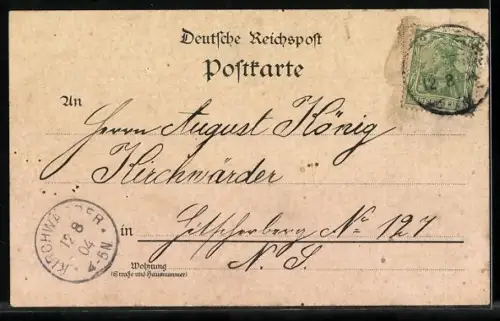 Deutsche Reichspost
Postkarte
12 8
An
Herrn August König
Kirchwärder
in Hitscherberg No 127
N. S.
Wohnung
(Straße und Hausnummer)
KIRCHWÄRDER
12 8
04
4-5N